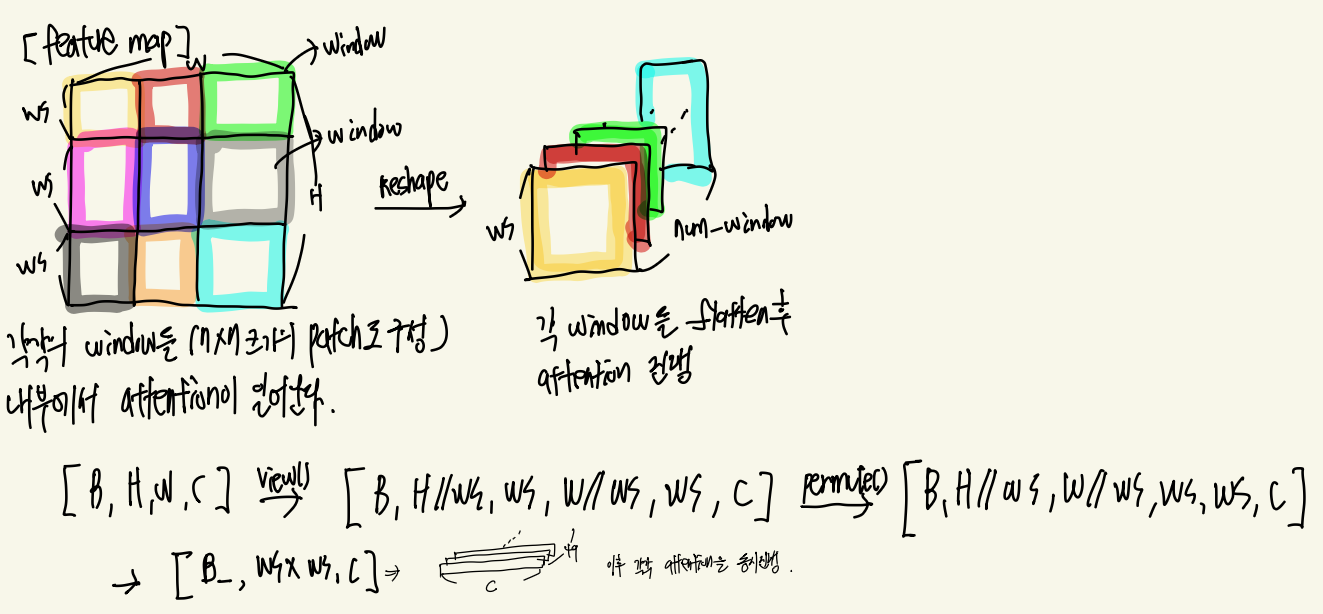 [feature map]
W
window
ws
window
ws
H
ws
reshape
ws
num-window
각각의 window들 (n×n 크기의 patch로 구성)
내부에서 attention이 일어난다.
각 window들 flatten 후
attention 진행
[B, H, W, C] view() → [B, H//ws, ws, W//ws, ws, C] permute() → [B, H//ws, W//ws, ws, ws, C]
→ [B_, ws×ws, C] ⇒
49
C
이후 각각 attention을 동시진행.